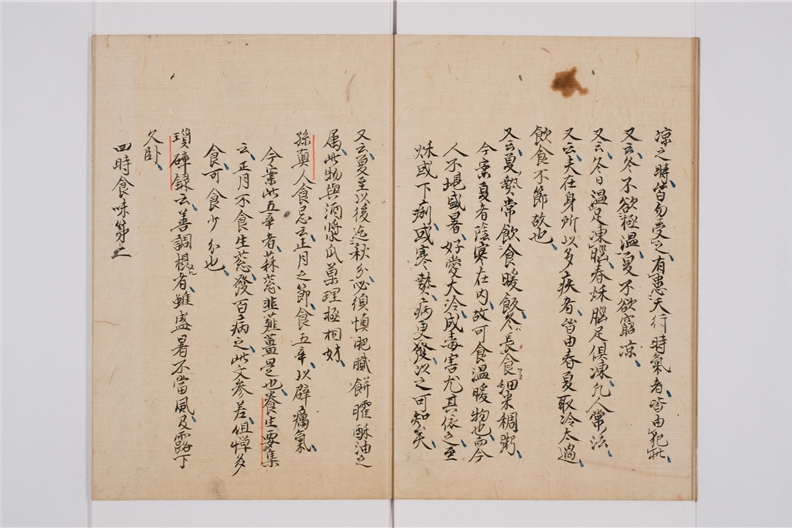 凉之時皆勿受之有患天行時氣者皆由犯此
又云冬不欲極温夏不欲窮凉
又云冬日温足凍腦春秋腦足俱凍凡人常法
又云夫在身所以多疾者皆由春夏取冷太過
飲食不節故也
又云夏熱常飲食暖飯冬長食細米稠粥
今案夏者陰寒在内故可食温暖物也而今
人不堪盛暑好愛大冷成毒害尤其依之至
秋或下痢或寒熱病更發以之可知矣
又云夏至以後迄秋分必須慎肥膩餅臛酥油之
属此物與酒漿瓜菓理極相妨
孫真人食忌云正月之節食五辛以辟癘氣
今案此五辛者蒜葱韮薤薑是也養生要集
云正月不食生葱發百病之此文參差但憚多
食可食少分也
瑣碎錄云善調攝者雖盛暑不當風及露下
久卧
四時食味第二